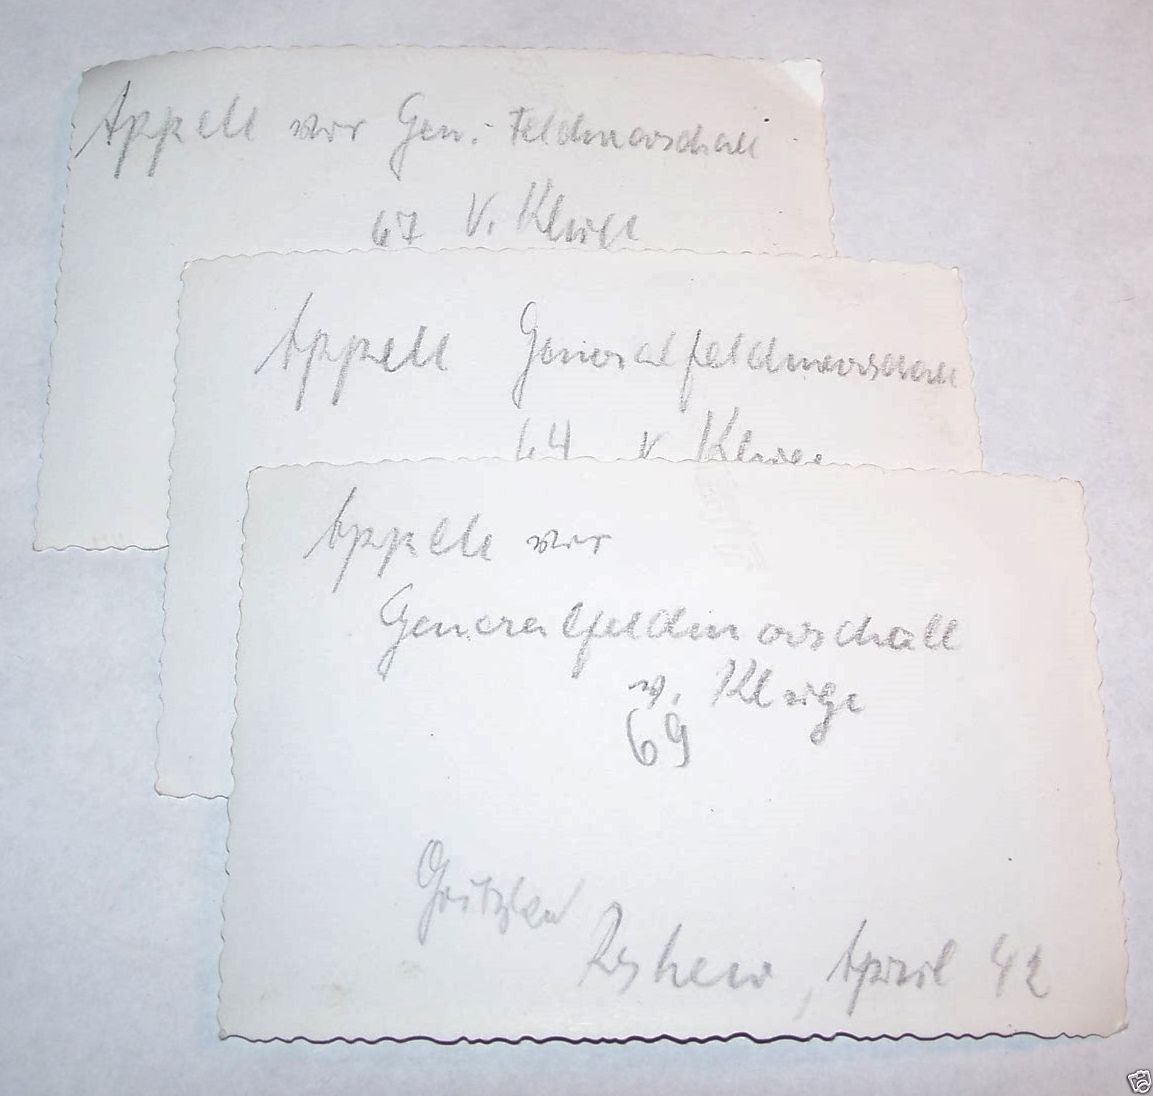 Appell vor Gen.-Feldmarschall
67 v. Kluge
Appell Generalfeldmarschall
64 v Kluge
Appell vor
Generalfeldmarschall
v. Kluge
69
Rshew, April 42